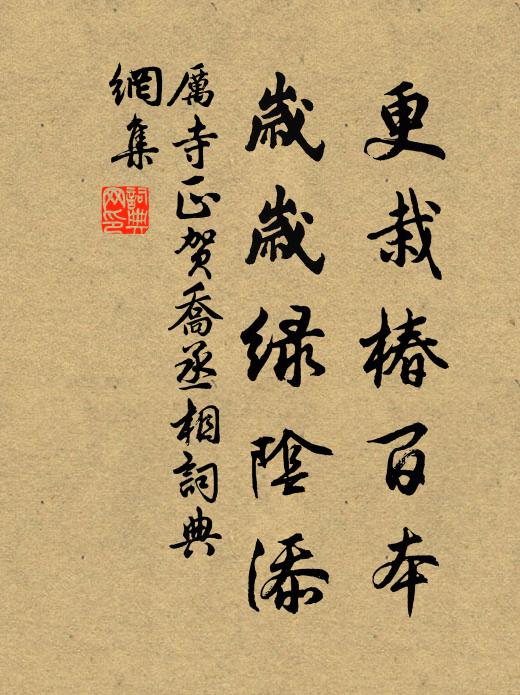 更栽椿百本
歲歲緑陰添
厲寺正賀喬丞相詞典
網集
詞典网印